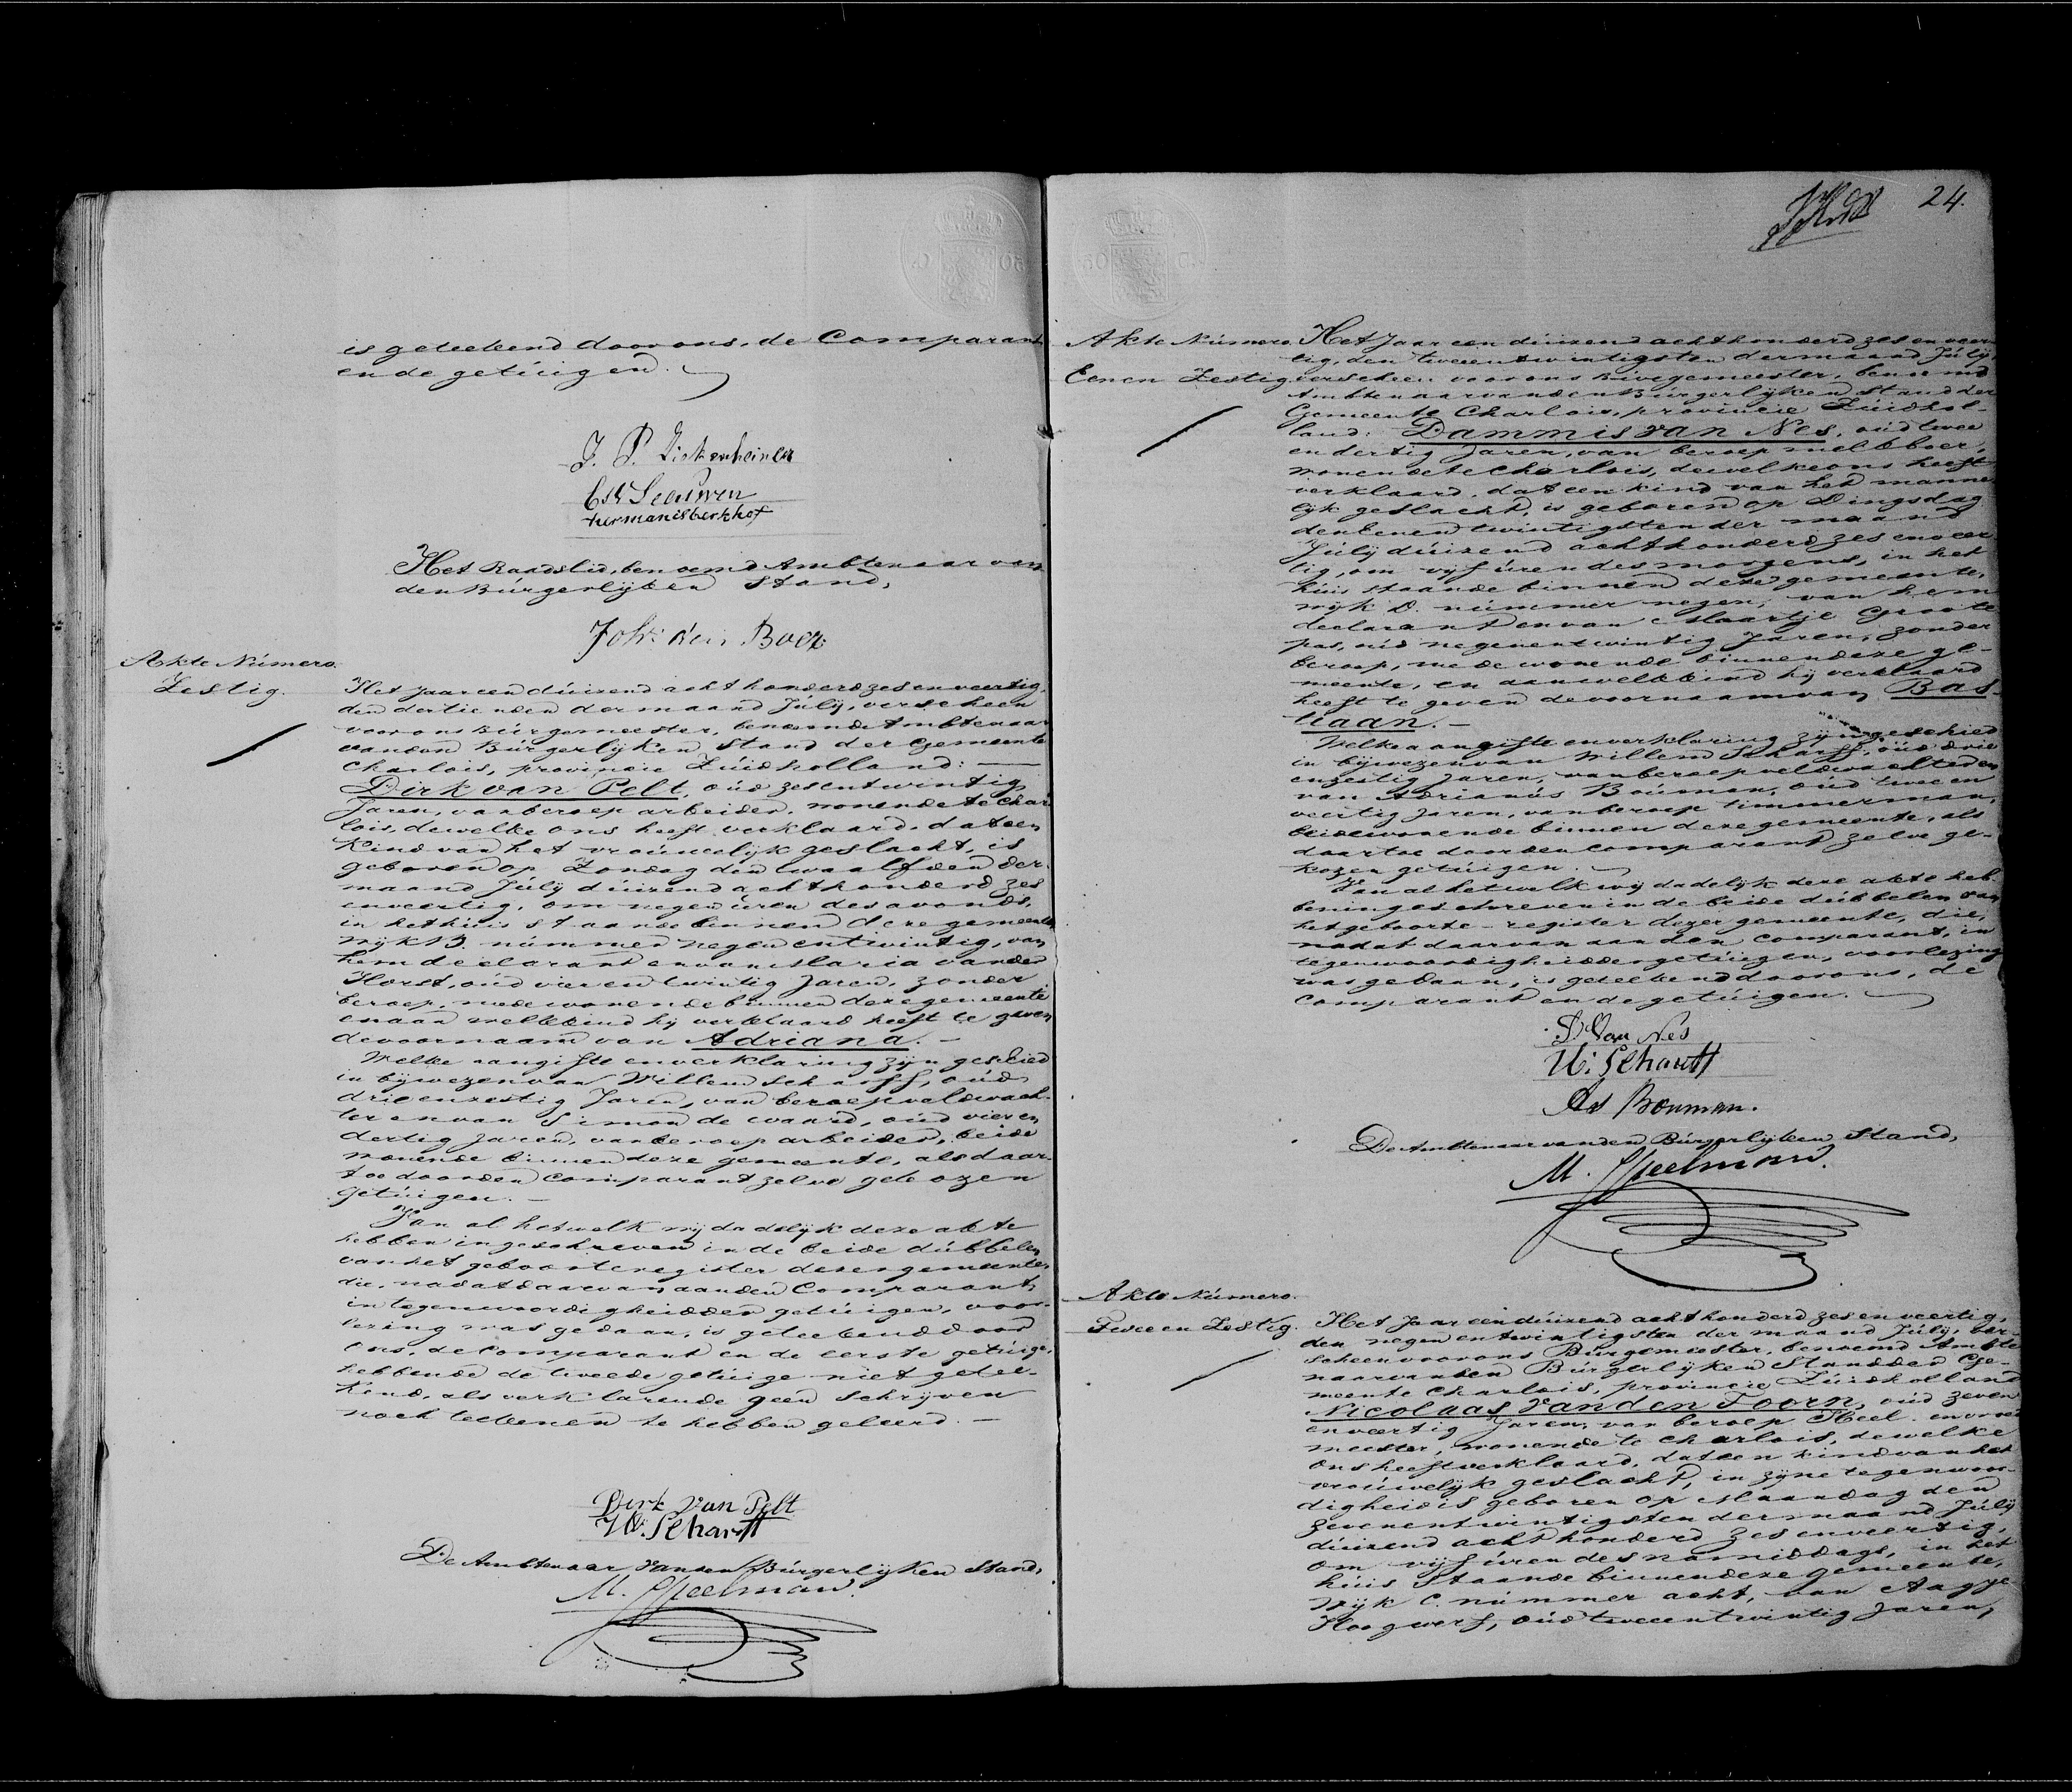 is geteekend door ons, de Comparant
en de getuigen.
J. P. Diekenheiner
Leeuwen
hermanis berkhof
Het Raadslid, benoemd Ambtenaar van
den Burgerlijken Stand,
Joh: den Boer
Akte Número.
Zestig.
Het jaar een duizend acht honderd zes en veertig,
den dertienden der maand Julij, verscheen
voor ons Burgemeester, benoemde Ambtenaar
van den Burgerlijken Stand der Gemeente
Charlois, provincie Zuidholland:
Dirk van Pelt, oud zesentwintig
Jaren, van beroep arbeider, wonende te Char
lois, dewelke ons heeft verklaard, dat een
Kind van het vrouwelijk geslacht, is
geboren op Zondag den twaalfden der
maand Julij duizend acht honderd zes
en veertig, om negen uren des avonds,
in het huis staande binnen deze gemeente
wijk B. nummer negen en twintig, van
hem declarant en van Maria van der
Horst, oud vier en twintig Jaren, zonder
beroep, mede wonende binnen deze gemeente
en aan welk kind hij verklaard heeft te geven
de voornaam van Adriana.
Welke aangifte en verklaring zijn geschied
in bijwezen van Willem Scharff, oud
drie en zestig Jaren, van beroep veldwach-
ter en van Simon de Waard, oud vier en
dertig jaren, van beroep arbeider, beide
wonende binnen deze gemeente, als daar-
toe door den Comparant zelve gekozen
getuigen.
Van al hetwelk wij dadelijk deze akte
hebben ingeschreven in de beide dubbelen
van het geboorteregister dezer gemeente,
die, nadat daarvan aan den Comparant,
in tegenwoordigheid der getuigen, voor-
lezing was gedaan, is geteekend door
ons, de Comparant en de eerste getuige,
hebbende de tweede getuige niet getee-
kend, als verklarende geen schrijven
noch teekenen te hebben geleerd.
Dirk van Pelt
W. Scharff
De Ambtenaar van den Burgerlijken Stand,
M. Speelman.
24.
Akte Número
Eenen Zestig
Het Jaar een duizend acht honderd zes en veer
tig, den tweeentwintigsten der maand Julij,
verscheen voor ons Burgemeester, benoemd
Ambtenaar van den Burgerlijken Stand der
Gemeente Charlois, provincie Zuidhol-
land: Dammis van Nes, oud twee
en dertig Jaren, van beroep melkboer,
wonende te Charlois, dewelke ons heeft
verklaard, dat een kind van het manne
lijk geslacht, is geboren op Dingsdag
den eenen twintigsten der maand
Julij duizend acht honderd zes en veer
tig, om vijf uren des morgens, in het
huis staande binnen deze gemeente,
wijk D. nummer negen, van hem
declarant en van Maartje Groote
pas, oud negenentwintig Jaren, zonder
beroep, mede wonende binnen deze ge-
meente, en aan welk kind hij verklaard
heeft te geven de voornaam van Bas-
tiaan.
Welke aangifte en verklaring zijn geschied
in bijwezen van Willem Scharff, oud drie
en zestig Jaren, van beroep veldwachter en
van Adrianus Bouman, oud twee en
veertig Jaren, van beroep timmerman,
beide wonende binnen deze gemeente, als
daartoe door den Comparant zelve ge-
kozen getuigen.
Van al hetwelk wij dadelijk deze akte heb-
ben ingeschreven in de beide dubbelen van
het geboorte-register dezer gemeente, die,
nadat daarvan aan den comparant, in
tegenwoordigheid der getuigen, voorlezing
was gedaan, is geteekend door ons, de
Comparant en de getuigen.
D. Van Nes
W. Scharff
As Bouman.
De Ambtenaar van den Burgerlijken Stand,
M. Speelman.
Akte Número.
Twee en Zestig.
Het Jaar een duizend acht honderd zes en veertig,
den negen en twintigsten der maand Julij, ver-
scheen voor ons Burgemeester, benoemd Ambte
naar van den Burgerlijken Stand der Ge-
meente Charlois, provincie Zuidholland
Nicolaas van den Toorn, oud zeven
en veertig Jaren, van beroep Heel en vroed
meester, wonende te Charlois, dewelke
ons heeft verklaard, dat een kind van het
vrouwelijk geslacht, in zijne tegenwoor-
digheid is geboren op Maandag den
zevenentwintigsten der maand Julij
duizend acht honderd zes en veertig,
om vijf uren des namiddags, in het
huis staande binnen deze gemeente,
wijk C. nummer acht, van Aagje
Hoogwerf, oud tweeentwintig jaren,